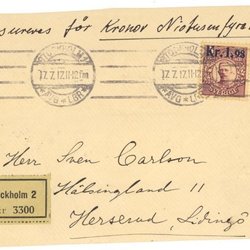 sureves för Kronor Niotusen fyra
STOCKHOLM
17.7.17.11-12 fm
AVG * LBR
STOCKHOLM
17.7.17.11-12 fm
AVG * LBR
Kr. 1,98
SVERIGE
Herr Sven Carlson
Hälsingland 11
Herserud, Lidingö
ockholm 2
3300